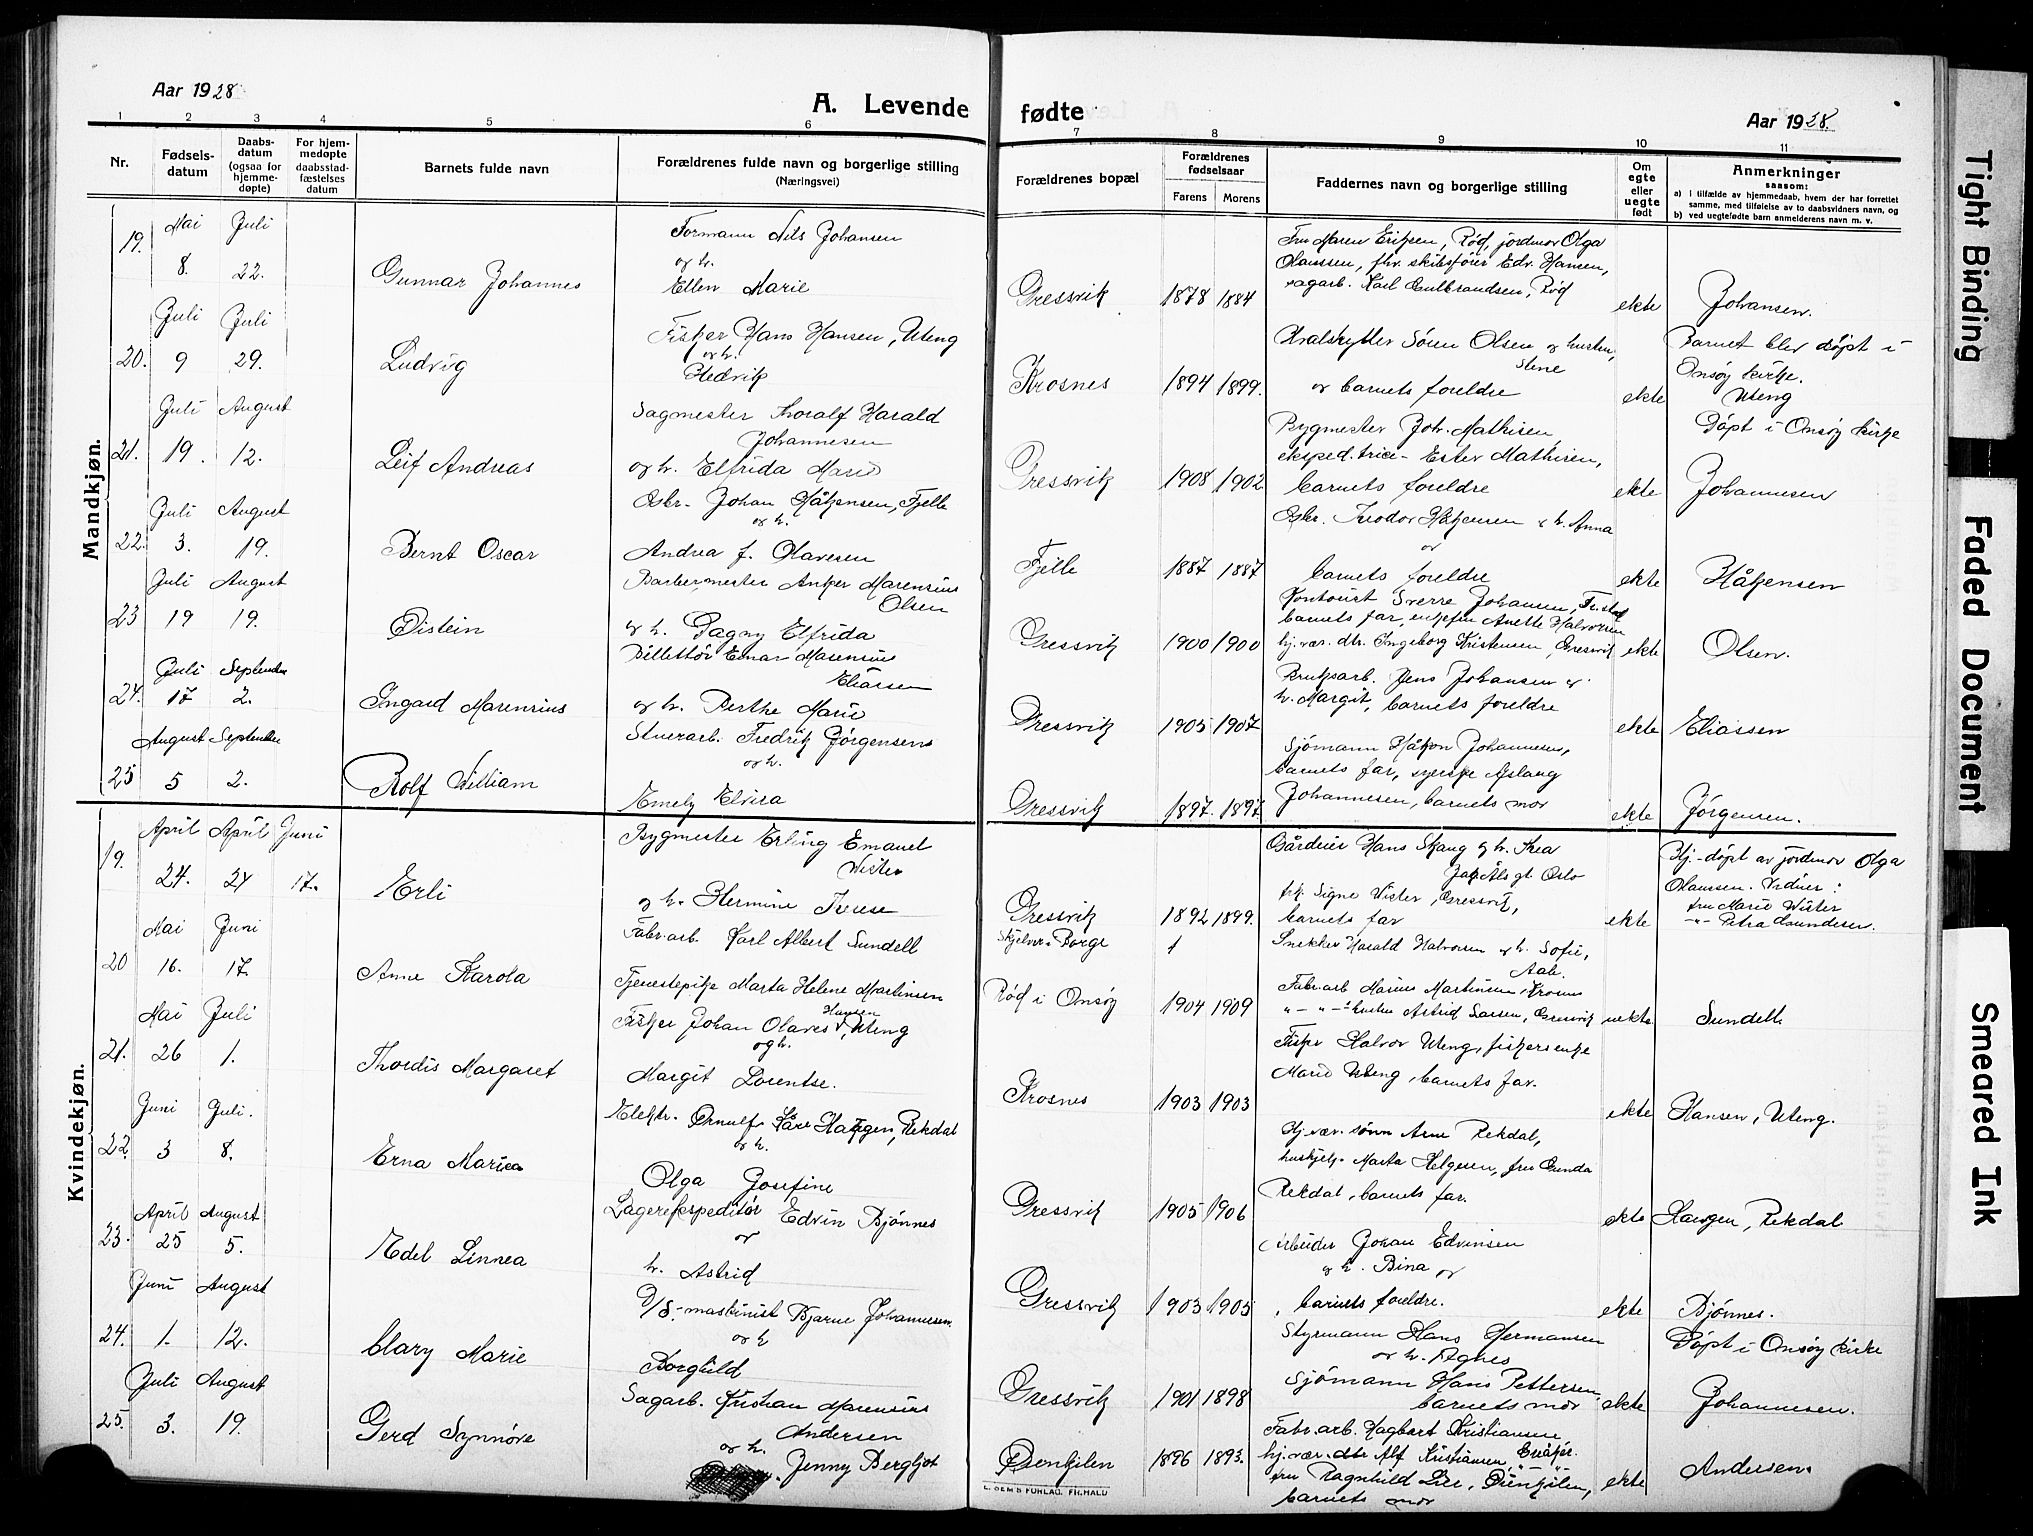 Aar 1928
A. Levende fødte
Aar 1928.
1 2 3 4 5 6 7 8 9 10 11
Nr.
Fødsels-
datum
Daabs-
datum
(ogsaa for
hjemme-
døpte)
For hjem-
medøpte
daabsstad-
fæstelses
datum
Barnets fulde navn
Forældrenes fulde navn og borgerlige stilling
(Næringsvei)
Forældrenes bopæl
Forældrenes
fødselsaar
Farens Morens
Faddernes navn og borgerlige stilling
Om
egte
eller
uegte
født
Anmerkninger
saasom:
a) i tilfælde av hjemmedaab, hvem der har forrettet
samme, med tilføielse av to daabsvidners navn, og
b) ved uegtefødte barn anmelderens navn m. v.
Mandkjøn.
19. Mai 8. Juli 22.
Gunnar Johannes
Formann Nils Johansen
og h.
Ellen Marie
Gressvik 1878 1884
Fru Maren Eriksen, Rød, jordmor Olga
Olaussen, fhv. skibsfører Edv. Hansen,
sagarb. Karl Gulbrandsen, Rød
ekte
Johansen.
20. Juli 9 Juli 29.
Ludvig
Fisker Hans Hansen, Uteng
og h.
Hedvik
Krosnes 1894 1899.
Hvalskytter Søren Olsen og hustru,
Stene
og barnets foreldre
ekte
Barnet blev døpt i
Onsøy kirke.
Uteng
21. Juli 19. August 12.
Leif Andreas
Sagmester Thoralf Harald
Johannesen
og h. Elfrida Marie
Gressvik 1908 1902
Bygmester Joh. Mathisen,
ekspeditrice Ester Mathisen,
barnets foreldre
ekte
Døpt i Onsøy kirke
Johannesen
22. Juli 3. August 19.
Bernt Oscar
Gbr. Johan Håkensen, Fjelle
og h.
Andrea f. Olavesen
Fjelle 1887 1887
Gbr. Teodor Håkensen & h. Anna
og
barnets foreldre
ekte
Håkensen
23 Juli 19 August 19.
Øistein
Barbermester Anker Marensius
Olsen
og h. Dagny Elfrida
Gressvik 1900 1900
Kontorist Sverre Johansen, Fr.stad
barnets far, enkefru Anette Halvorsen
hj.vær. dtr. Ingeborg Kristensen, Gressvik
ekte
Olsen.
24. Juli 17 September 2.
Ingard Marensius
Billettør Einar Marensius
Eliassen
og h. Berthe Marie
Gressvik 1905 1907
Bruksarb. Jens Johansen og
h. Margit, barnets foreldre
ekte
Eliassen
25 August 5 September 2.
Rolf William
Stuerarb. Fredrik Jørgensens
og h.
Emely Elvira
Gressvik 1897. 1897
Sjømann Håkon Johannesen,
barnets far, syerske Aslaug
Johannesen, barnets mor
ekte
Jørgensen.
Kvindekjøn.
19. April 24. April 24 Juni 17.
Erli
Bygmester Erling Emanuel
Wister
og h. Hermine Terese
Gressvik 1892 1899.
Gårdeier Hans Skaug og h. Thea
Jak. Åls gt. Oslo
frk. Signe Wister, Gressvik,
barnets far
ekte
Hj.-døpt av jordmor Olga
Olaussen. Vidner:
fru Marie Wister
-"- Petra Gundersen.
20 Mai 16. Juni 17.
Anne Karola
Fabr.arb. Karl Albert Sundell
Tjenestepike Marta Helene Martinsen
Skjelvik i Borge
Rød i Onsøy 1904 1909
Snekker Harald Halvorsen og h. Sofie,
Aale.
Fabr.arb Marius Martinsen, Krosnes
-"- -"- hustru Astrid Larsen, Gressvik
uekte
Sundell
21. Mai 26 Juli 1.
Thordis Margaret
Fisker Johan Olaves Hansen, Uteng
og h.
Margit Lorentse.
Krosnes 1903 1903
Fisker Halvor Uteng, fiskerenke
Marie Uteng, barnets far.
ekte
Hansen, Uteng.
22. Juni 3 Juli. 8.
Erna Marie
Elektr. Ørnulf Kåre Haugen, Rekdal
og h.
Olga Josefine
Gressvik 1905 1906
Hj.vær. sønn Arne Rekdal,
hushjelp Marta Helgesen, fru Gunda
Rekdal, barnets far.
ekte
Haugen, Rekdal
23. April 25 August 5.
Edel Linnea
Lagerekspeditør Edvin Bjønnes
og
h. Astrid
Gressvik 1903 1905
Arbeider Johan Edvinsen
og h. Bina og
barnets foreldre.
ekte
Bjønnes.
24. Juni 1. August 12.
Clary Marie
D/S.-maskinist Bjarne Johannesen
og h
Borghild
Gressvik 1901 1898
Styrmann Hans Hermansen
og h. Agnes
Sjømann Hans Pettersen
barnets mor
ekte
Døpt i Onsøy kirke
Johannesen.
25. Juli 3. August 19.
Gerd Synnøve
Sagarb. Kristian Marensius
Andersen
og h.
Jenny Bergljot
Ørenkilen 1896 1893.
Fabr.arb. Hagbart Kristiansen
hj.vær. dtr Alf Kristiansen,
fru Ragnhild Lie, Ørenkilen,
barnets mor
ekte
Andersen
E. SEM'S FORLAG. FR.HALD
Tight Binding
Faded Document
Smeared Ink